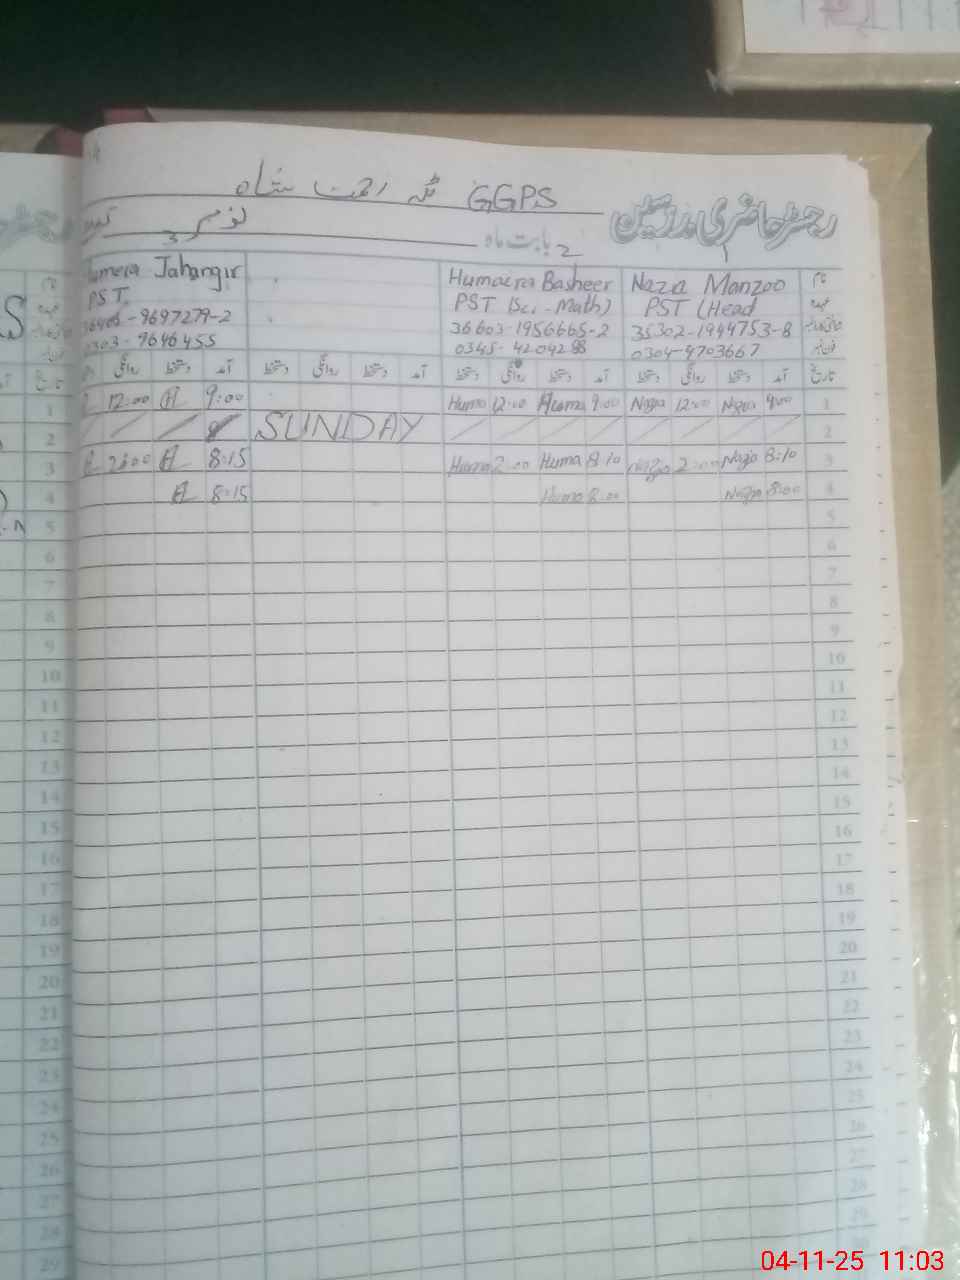 GGPS ٹھہ رحمت شاہ
رجسٹر حاضری مدرسین
بابت ماہ نومبر
1
2
3
Naza Manzoo
PST (Head
35302-1944753-8
0304-4703667
Humaera Basheer
PST (Sci. Math)
36603-1956665-2
0345-4204288
Humera Jahangir
PST
-9697279-2
0303-9646455
تاریخ آمد دستخط روانگی دستخط آمد دستخط روانگی دستخط آمد دستخط روانگی دستخط
1 9:00 Naza 12:00 Naza 9:00 Huma 12:00 Huma 9:00 A 12:00
2 SUNDAY
3 8:10 Naza 2:00 Naza 8:10 Huma 2:00 Huma 8:15 A 2:00 A
4 8:00 Naza 8:00 Huma 8:15 A
5
6
7
8
9
10
11
12
13
14
15
16
17
18
19
20
21
22
23
24
25
26
27
28
29
30
04-11-25 11:03